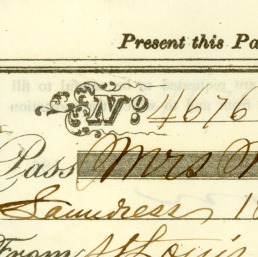 Present this Pa
No. 4676
Pass Mrs
Laundress, 18
From St Louis